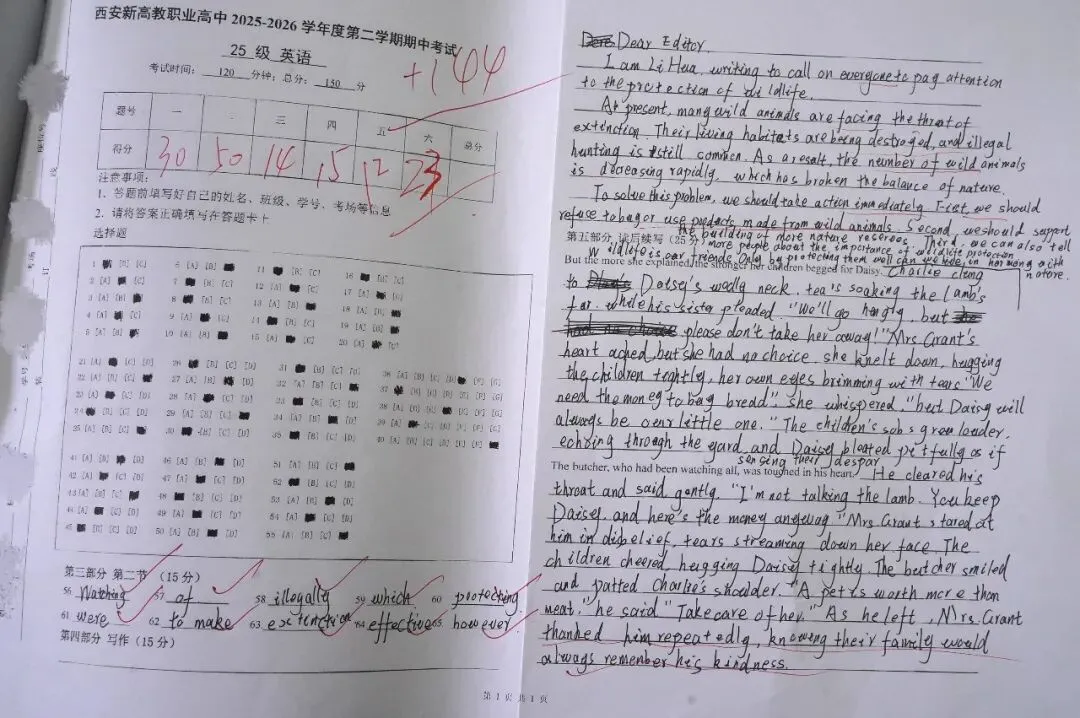 西安新高教职业高中 2025-2026 学年度第二学期期中考试
25 级 英语
+144
考试时间: 120 分钟; 总分: 150 分
题号 一 二 三 四 五 六 总分
得分 30 50 14 15 12 23
注意事项:
1、答题前填写好自己的姓名、班级、学号、考场等信息
2、请将答案正确填写在答题卡上
选择题
第三部分 第二节 (15 分)
56 Watching 57 of 58 illegally 59 which 60 protecting
61 were 62 to make 63 extinction 64 effective 65 however
第四部分 写作 (15 分)
Dear Editor,
I am Li Hua, writing to call on everyone to pay attention
to the protection of wildlife.
At present, many wild animals are facing the threat of
extinction. Their living habitats are being destroyed, and illegal
hunting is still common. As a result, the number of wild animals
is decreasing rapidly, which has broken the balance of nature.
To solve this problem, we should take action immediately. First, we should
refuse to buy or use products made from wild animals. Second, we should support
the building of more nature reserves. Third, we can also tell
第五部分 读后续写 (25 分)
more people about the importance of wildlife protection
Wildlife is our friends. Only by protecting them well can we live in harmony with
nature.
But the more she explained, the stronger her children begged for Daisy. Charlie clung
to Daisy's woolly neck, tears soaking the lamb's
fur, while his sister pleaded. "We'll go hungry, but
please don't take her away!" Mrs Grant's
heart ached, but she had no choice. she knelt down, hugging
the children tightly, her own eyes brimming with tears "We
need the money to buy bread", she whispered, "but Daisy will
always be our little one." The children's sobs grew louder,
echoing through the yard, and Daisy bleated pitifully as if
sensing their despar
The butcher, who had been watching all, was touched in his heart. He cleared his
throat and said gently, "I'm not talking the lamb. You keep
Daisy, and here's the money anyway" Mrs Grant stared at
him in disbelief, tears streaming down her face. The
children cheered, hugging Daisy tightly. The butcher smiled
and patted Charlie's shoulder. "A pet is worth more than
meat," he said "Take care of her." As he left, Mrs. Grant
thanked him repeatedly, knowing their family would
always remember his kindness.
第 1 页 共 1 页